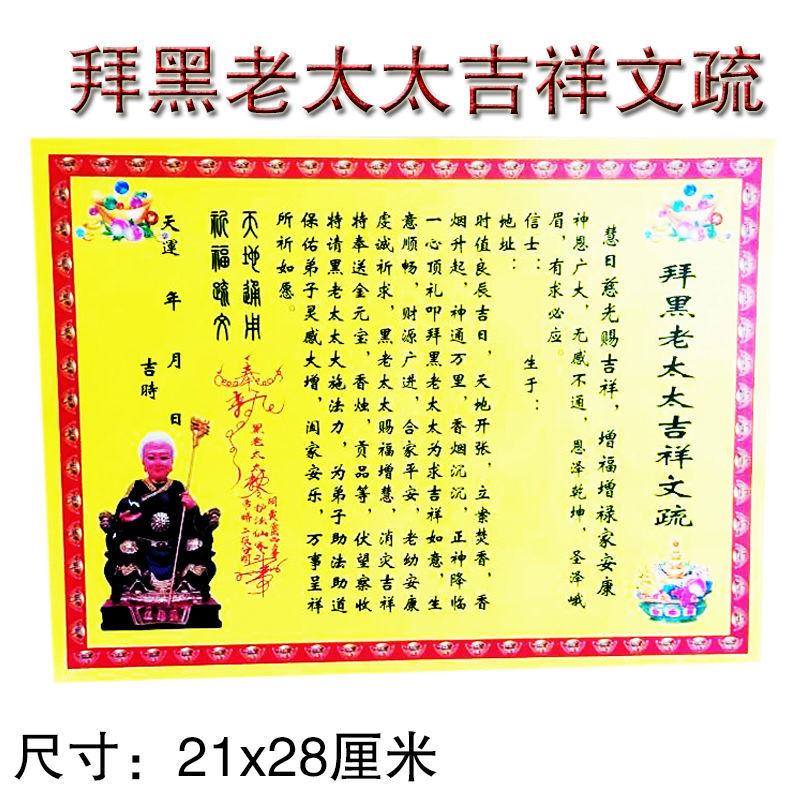 拜黑老太太吉祥文疏
拜黑老太太吉祥文疏
慧日慈光赐吉祥，增福增禄家安康
神恩广大，无感不通，恩泽乾坤，圣泽峨
眉，有求必应。
信士：生于：
地址：
时值良辰吉日，天地开张，立案焚香，香
烟升起，神通万里，香烟沉沉，正神降临
一心顶礼叩拜黑老太太为求吉祥如意，生
意顺畅，财源广进，合家平安，老幼安康
虔诚祈求，黑老太太赐福增慧，消灾吉祥
特奉送金元宝，香烛，贡品等，伏望察收
特请黑老太太大施法力，为弟子助法助道
保佑弟子灵感大增，阖家安乐，万事呈祥
所祈如愿。
天地通用
祈福疏文
奉
黑老太太
天運 年 月 日
吉時
尺寸：21x28厘米